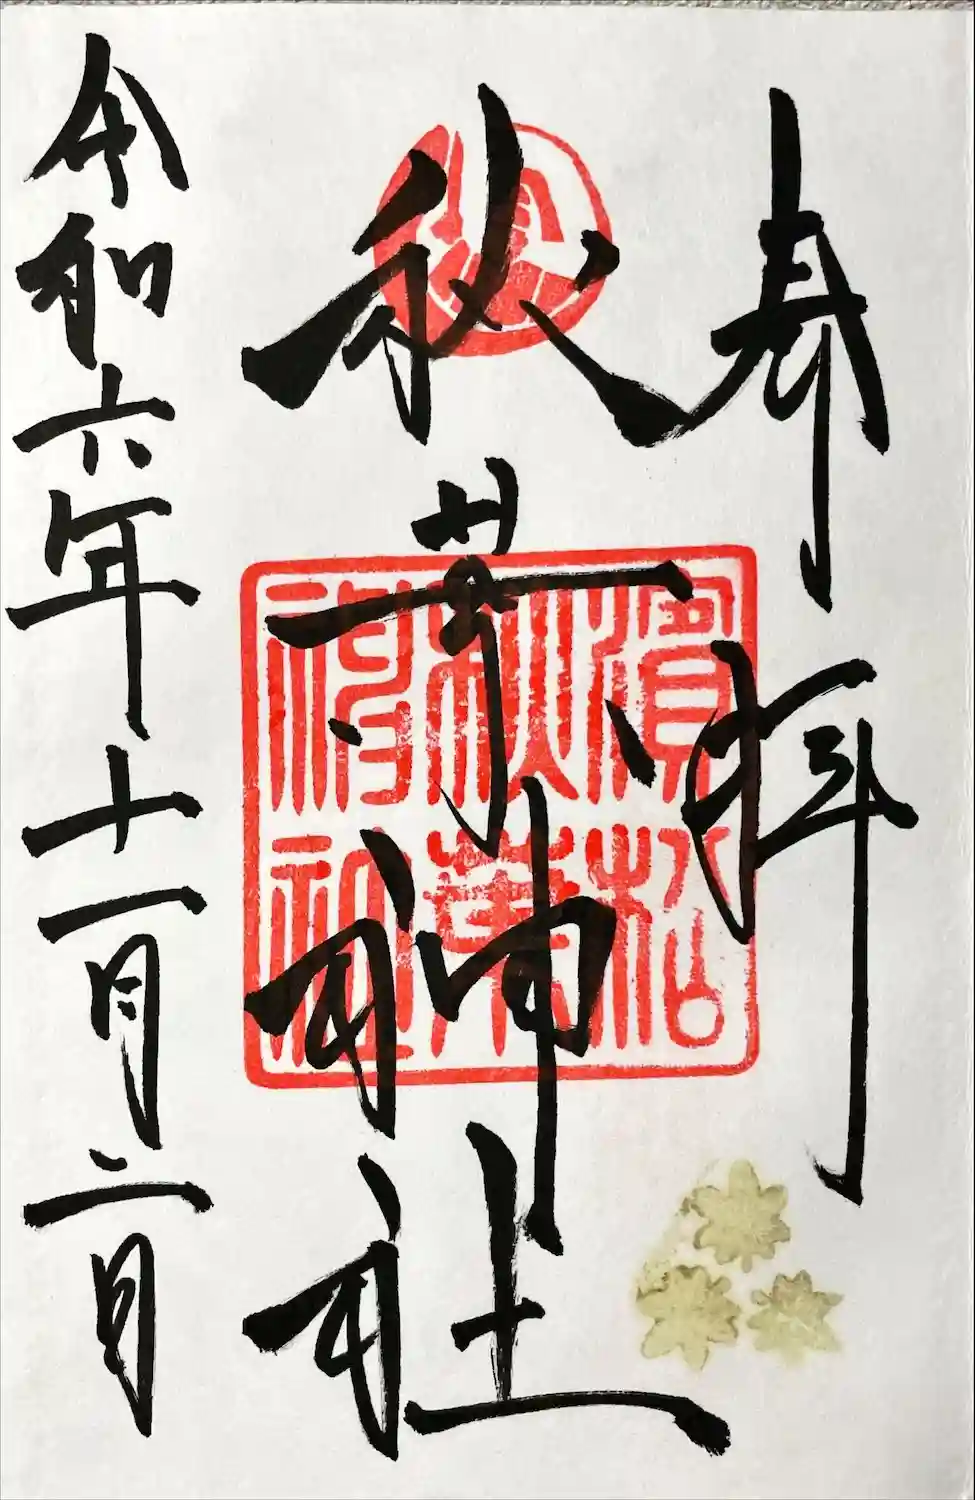 奉拝
秋葉神社
濱松
秋葉
神社
令和六年十一月二日